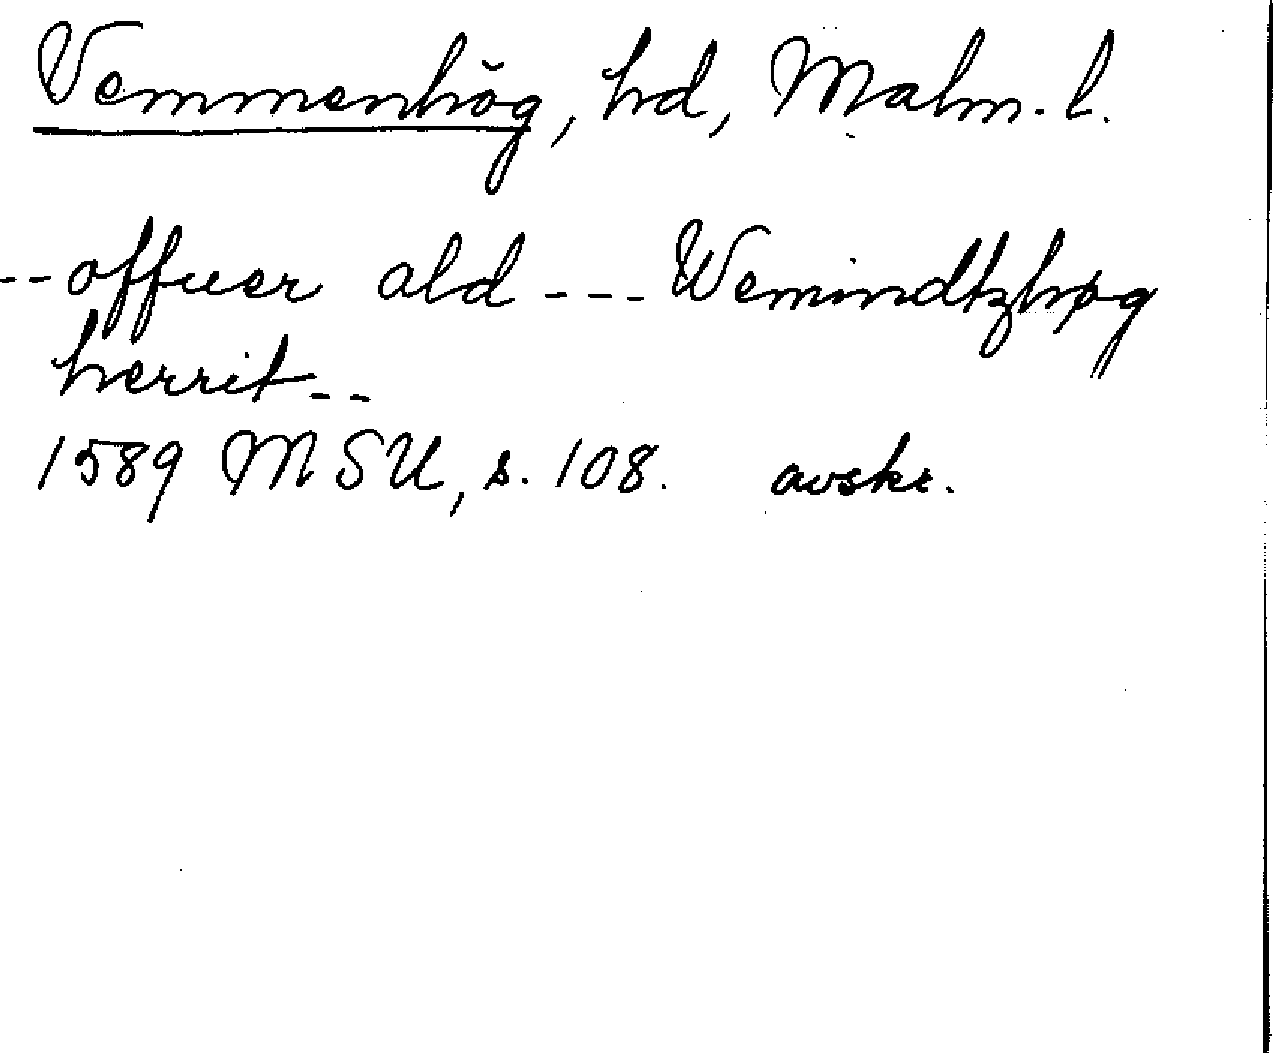 Vemmenhög, hd, Malm. l.
--offuer ald --- Wemindtzhøg
herrit--
1589 MSU, s. 108. avskr.